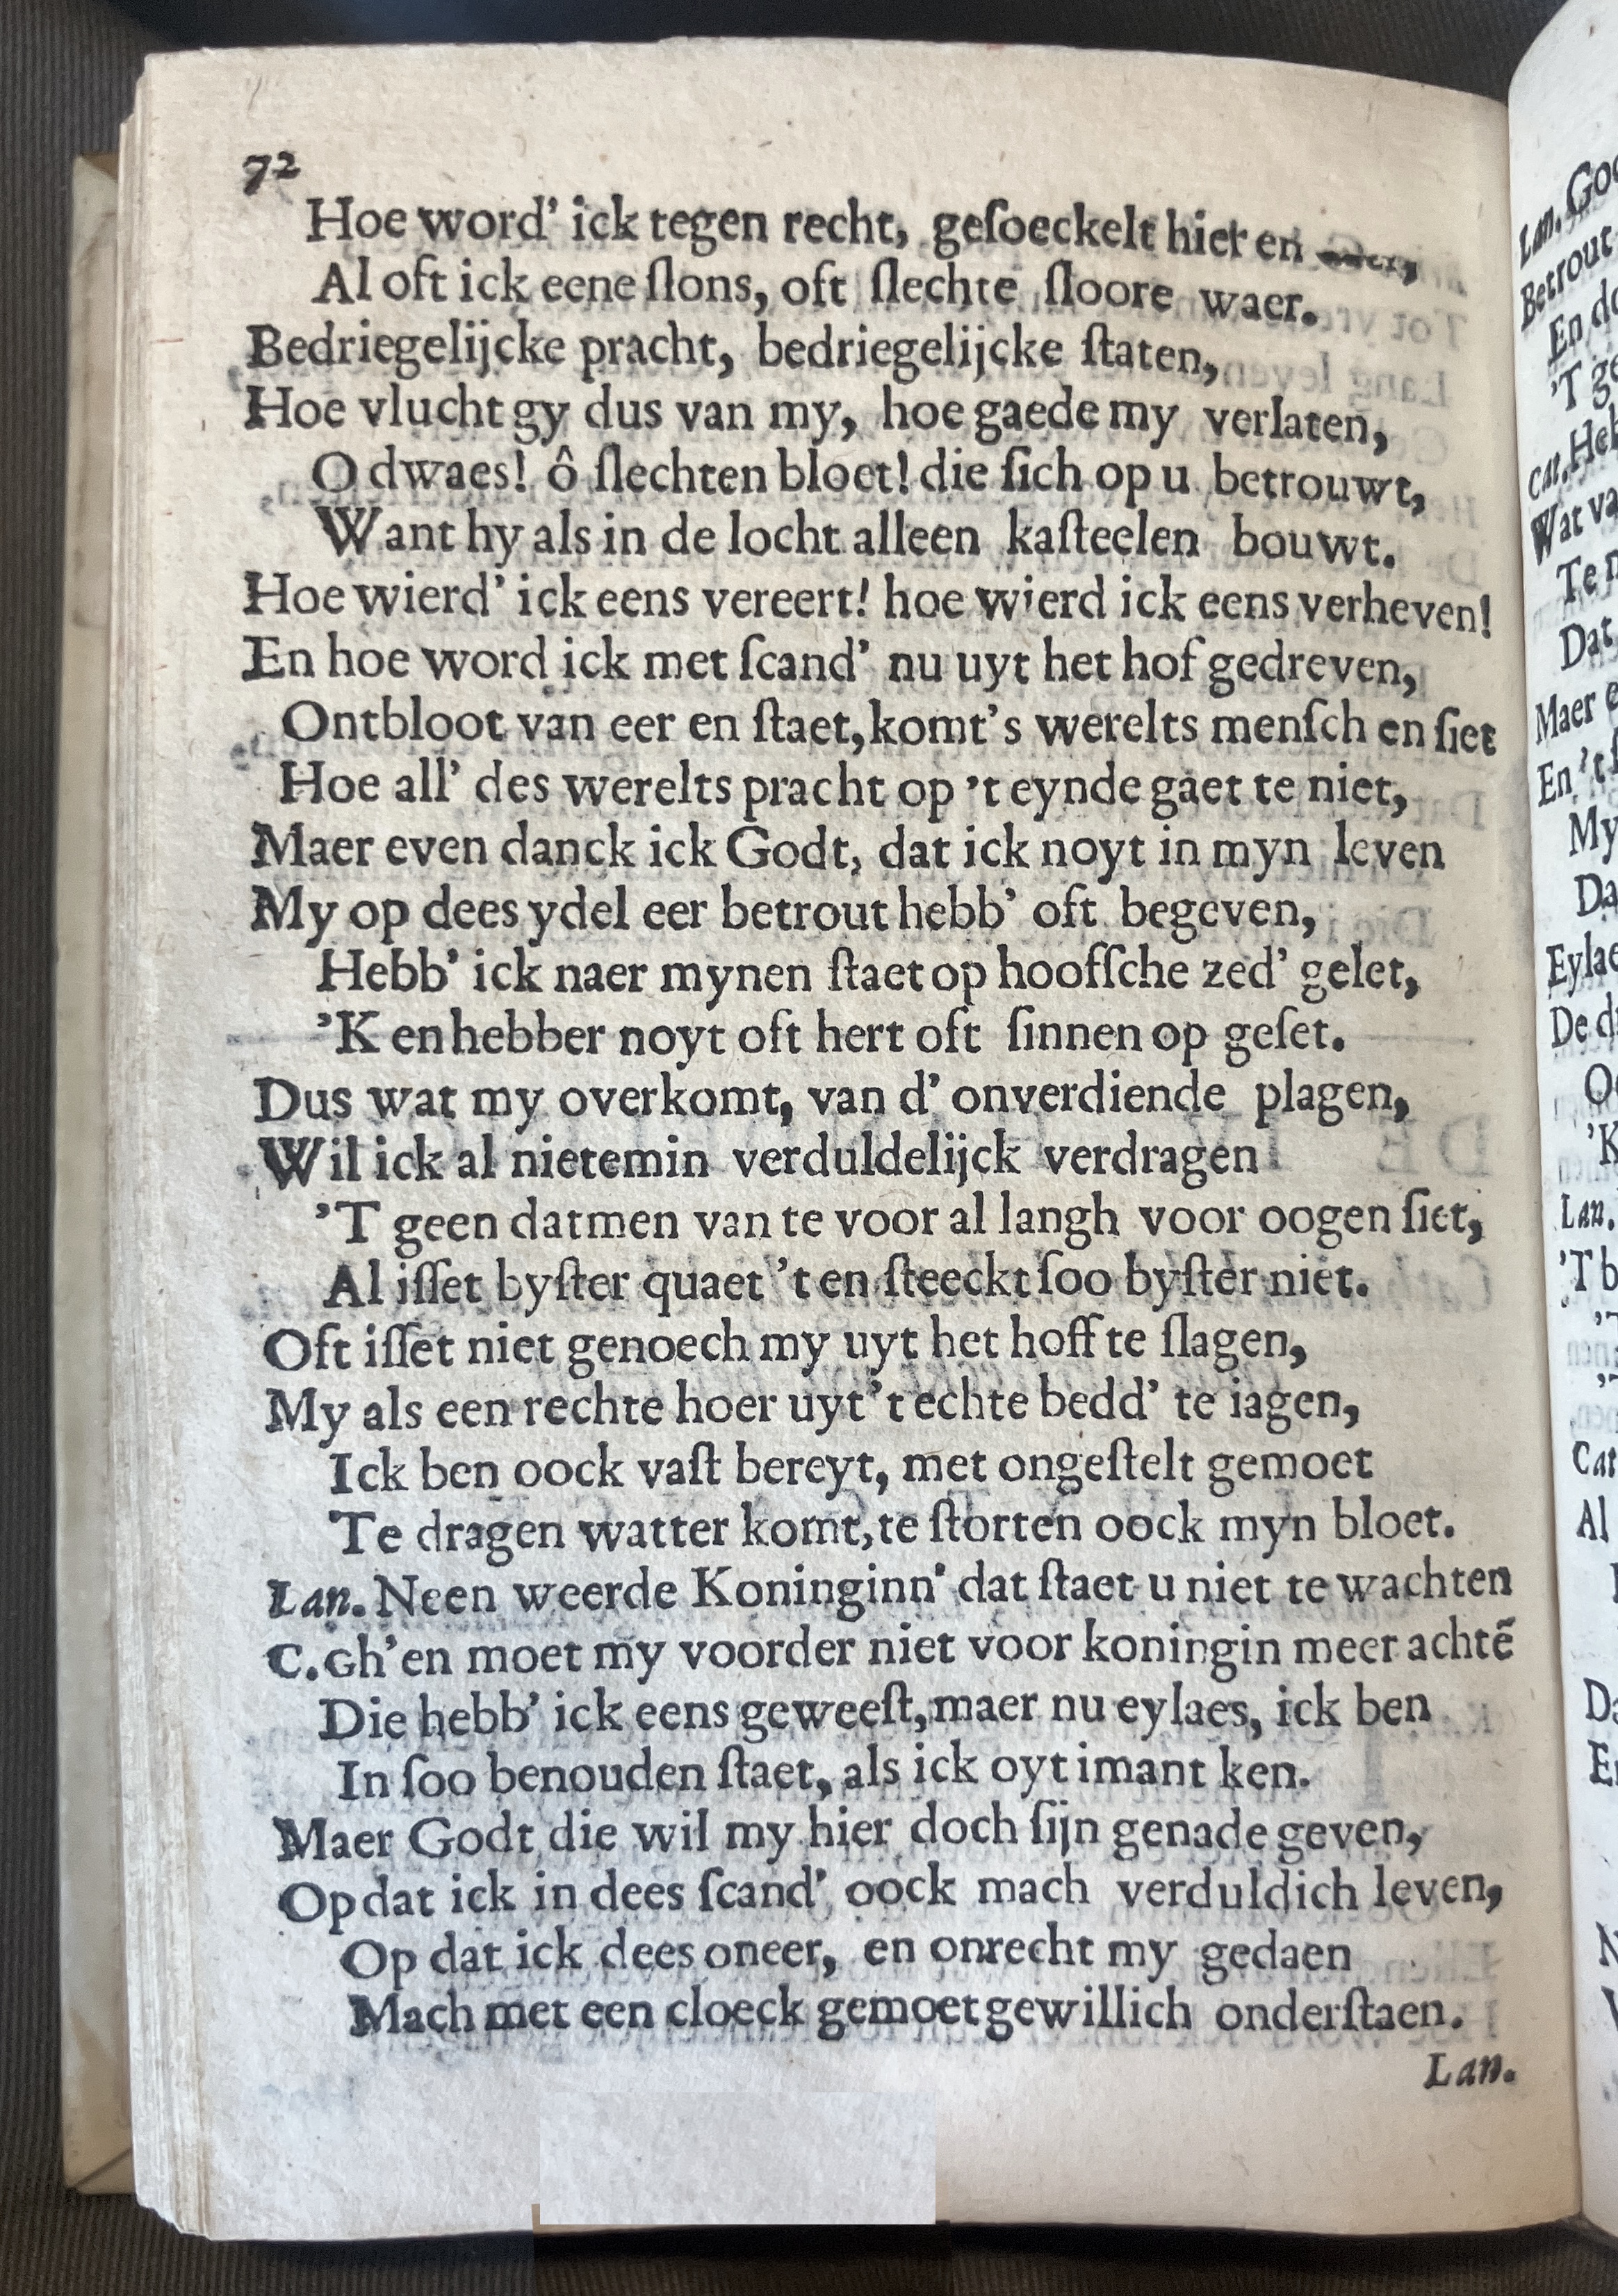 72
Hoe word' ick tegen recht, geſoeckelt hier en
Al oft ick eene ſlons, oft ſlechte ſloore waer.
Bedriegelijcke pracht, bedriegelijcke ſtaten,
Hoe vlucht gy dus van my, hoe gaede my verlaten,
O dwaes! ô ſlechten bloet! die ſich op u betrouwt,
Want hy als in de locht alleen kaſteelen bouwt.
Hoe wierd' ick eens vereert! hoe wierd ick eens verheven!
En hoe word ick met ſcand' nu uyt het hof gedreven,
Ontbloot van eer en ſtaet, komt's werelts menſch en ſiet
Hoe all' des werelts pracht op 't eynde gaet te niet,
Maer even danck ick Godt, dat ick noyt in myn leven
My op dees ydel eer betrout hebb' oft begeven,
Hebb' ick naer mynen ſtaet op hoofſche zed' gelet,
'K en hebber noyt oft hert oft ſinnen op geſet.
Dus wat my overkomt, van d' onverdiende plagen,
Wil ick al nietemin verduldelijck verdragen
'T geen datmen van te voor al langh voor oogen ſiet,
Al iſſet byſter quaet 't en ſteeckt ſoo byſter niet.
Oft iſſet niet genoech my uyt het hoff te ſlagen,
My als een rechte hoer uyt 't echte bedd' te iagen,
Ick ben oock vaſt bereyt, met ongeſtelt gemoet
Te dragen watter komt, te ſtorten oock myn bloet.
Lan. Neen weerde Koninginn' dat ſtaet u niet te wachten
C. Gh'en moet my voorder niet voor koningin meer achtẽ
Die hebb' ick eens geweeſt, maer nu eylaes, ick ben
In ſoo benouden ſtaet, als ick oyt imant ken.
Maer Godt die wil my hier doch ſijn genade geven,
Opdat ick in dees ſcand' oock mach verduldich leven,
Op dat ick dees oneer, en onrecht my gedaen
Mach met een cloeck gemoet gewillich onderſtaen.
Lan.